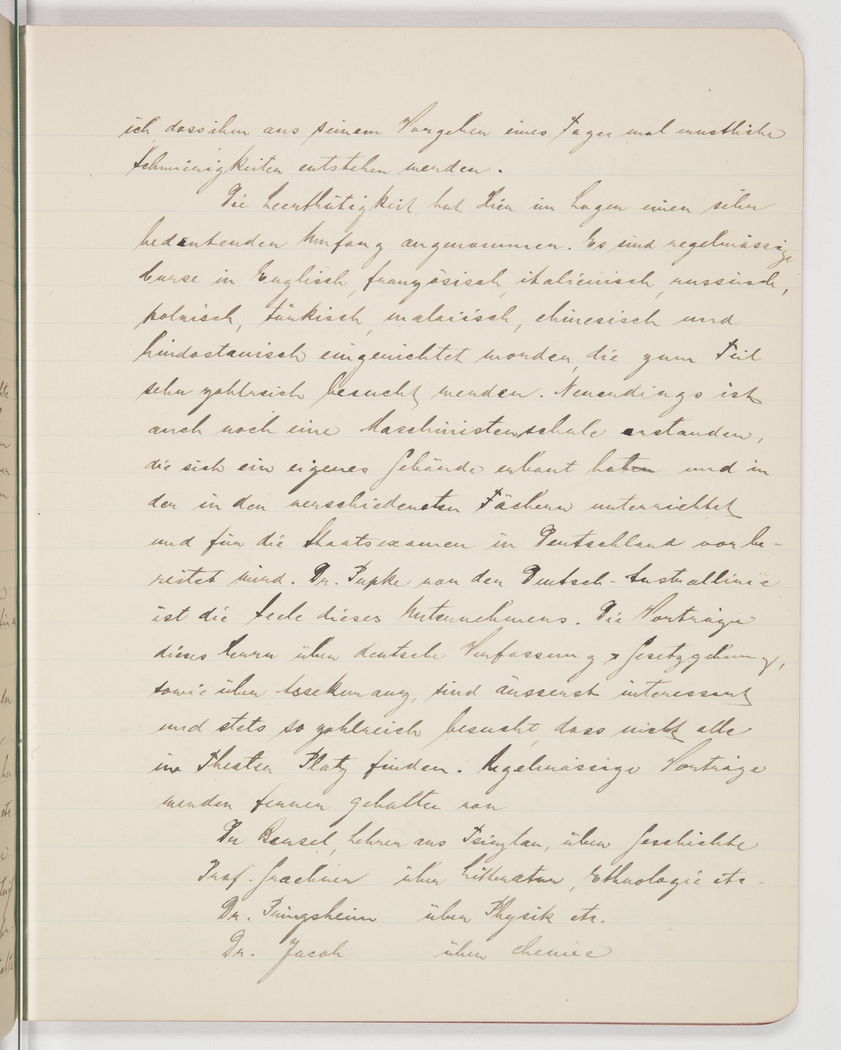 ich, dass ihm aus seinem Vorgehen eines Tages mal ernstliche
Schwierigkeiten entstehen werden.
Die Leerthätigkeit hat hier im Lager einen sehr
bedeutenden Umfang angenommen. Es sind regelmässige
Curse in Englisch, französisch, italienisch, russisch,
polnisch, türkisch, malaiisch, chinesisch und
hindostanisch eingerichtet worden, die zum Teil
sehr zahlreich besucht werden. Neuerdings ist
auch noch eine Maschinistenschule erstanden,
die sich ein eigenes Gebäude erbaut haten und in
der in den verschiedensten Fächern unterrichtet
und für die Staatsexamen in Deutschland vorbe-
reitet wird. Dr. Pupke von der Deutsch-Australlinie
ist die Seele dieses Unternehmens. Die Vorträge
dieses Herrn über deutsche Verfassung & Gesetzgebung,
sowie über Assekuranz, sind äusserst interessant
und stets so zahlreich besucht, dass nicht alle
im Theater Platz finden. Regelmässige Vorträge
werden ferner gehalten von
Dr Bensel, Lehrer aus Tsingtau, über Geschichte
Prof. Graebner über Litteratur, Ethnologie etc.
Dr. Pringsheim über Physik etc.
Dr. Jacob über Chemie